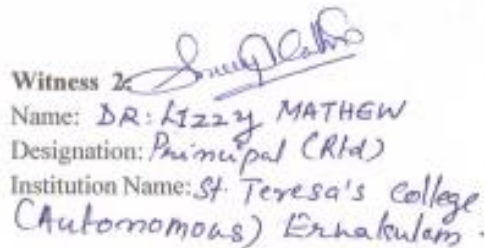 Witness 2:
Name: DR: LIZZY MATHEW
Designation: Principal (Rtd)
Institution Name: St. Teresa's College
(Autonomous) Ernakulam.